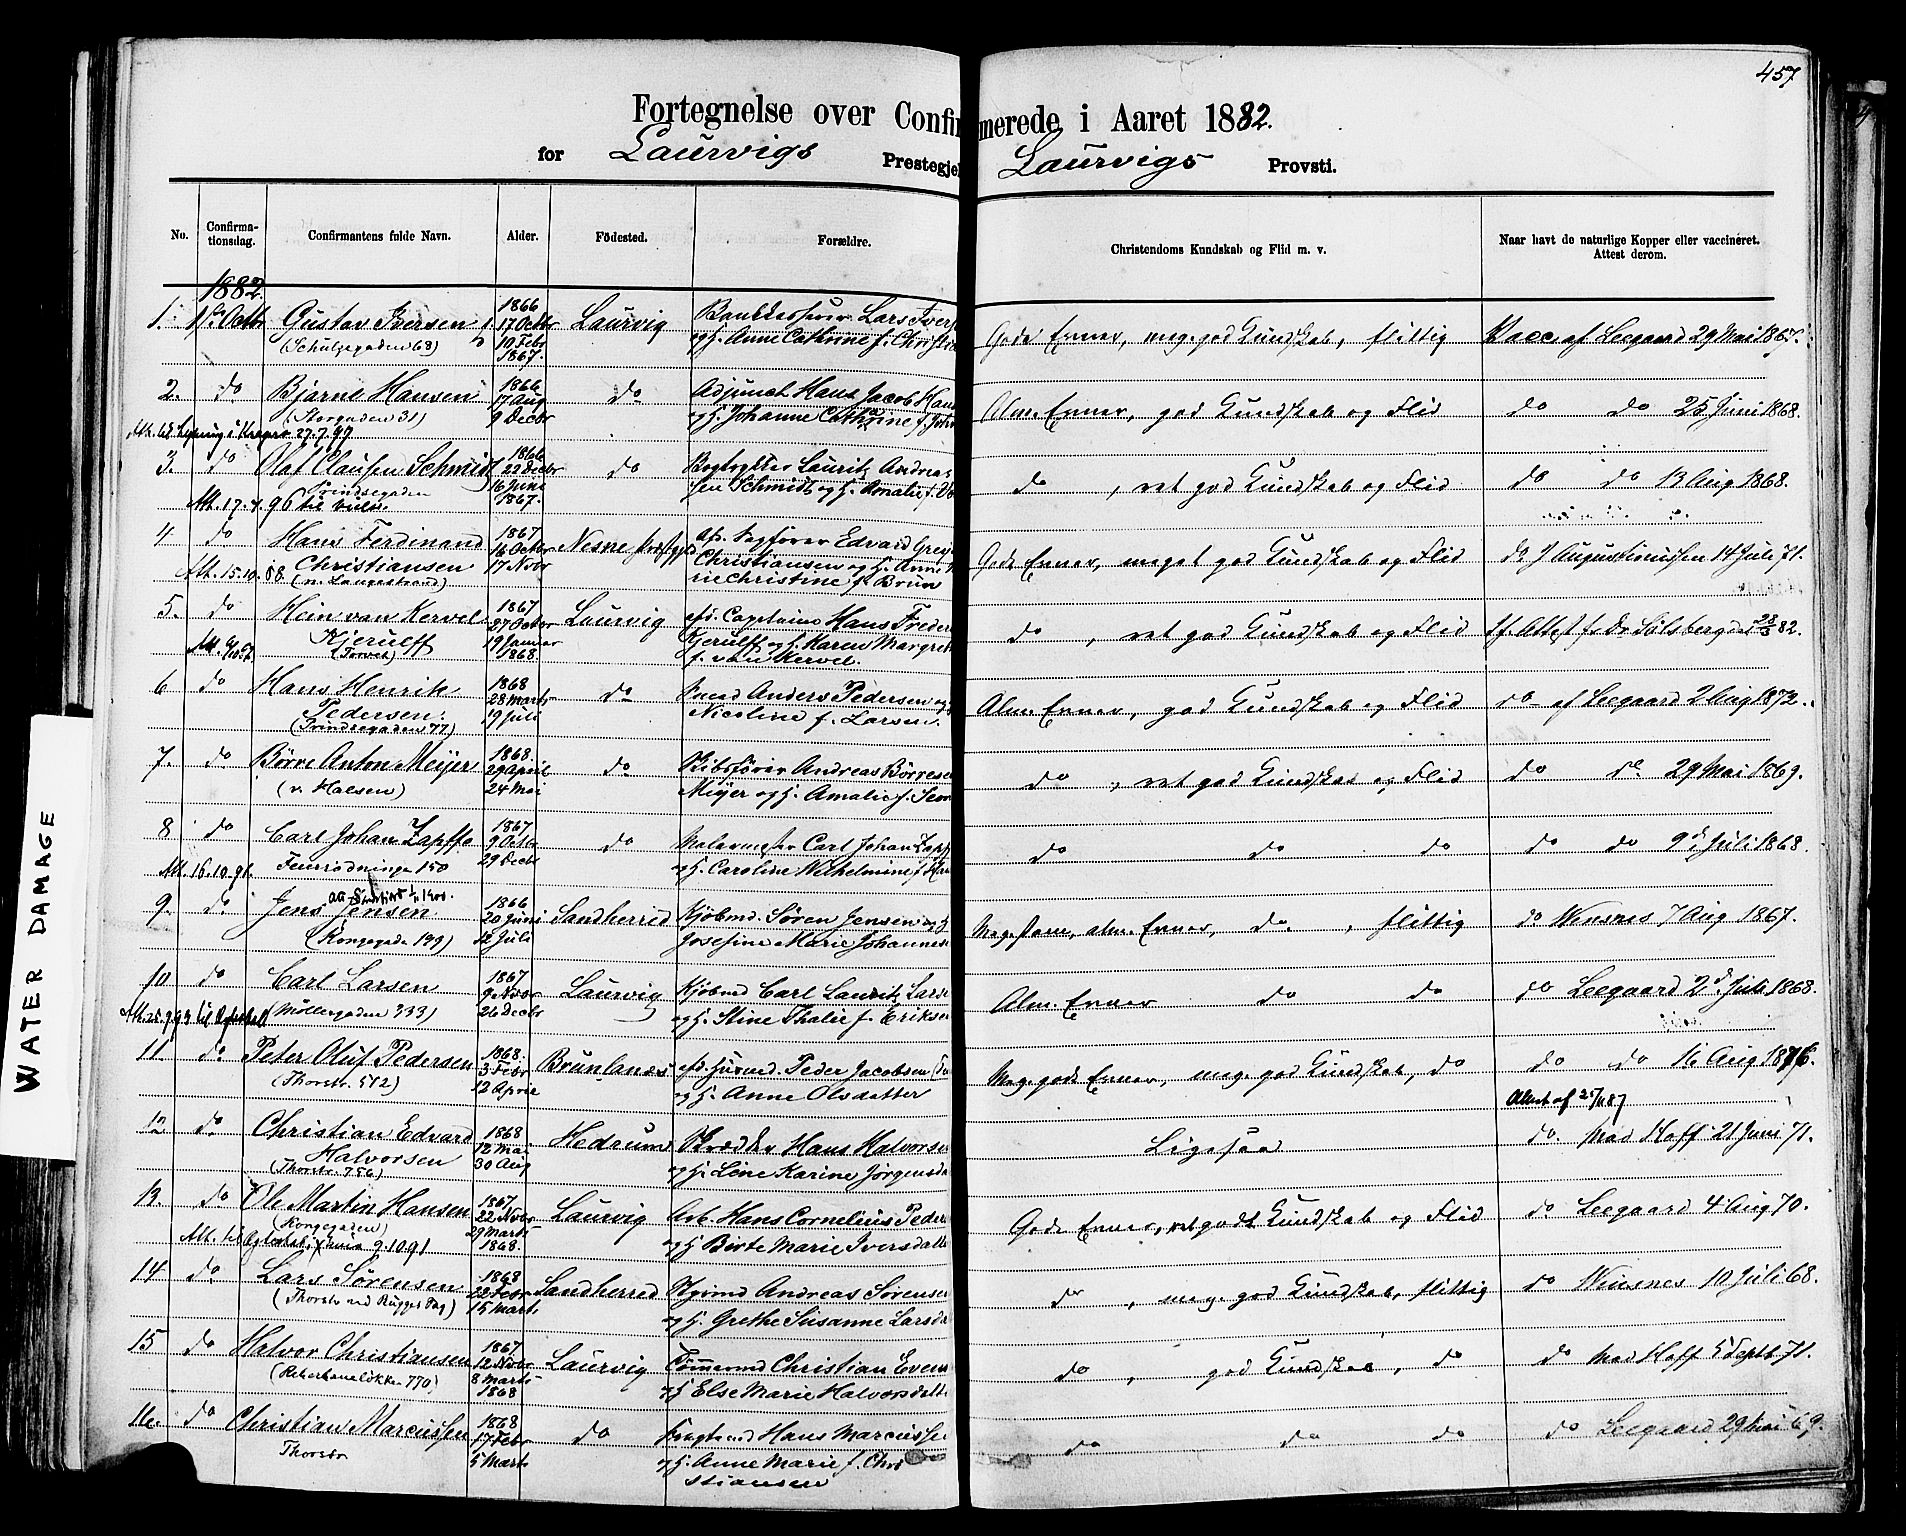 457
Fortegnelse over Confirmerede i Aaret 1882.
for Laurvigs Prestegjel Laurvigs Provsti.
No. Confirma-tionsdag. Confirmantens fulde Navn. Alder. Fødested. Forældre. Christendoms Kundskab og Flid m. v. Naar havt de naturlige Kopper eller vaccineret. Attest derom.
1882.
1. 1ste Octbr Gustav Iversen 1866 Laurvig Lars Ivers Gode Evner, meg. god Kundskab, flittig Vacc af Leegaard 29 Mai 1867.
(Schulzegaden 68) 17 Octbr og H. Anne Cathrine f. Christia
10 Febr
1867.
2. do Bjarne Hansen 1866 do Adjunct Hans Jacob Hans Alm. Evner, god Kundskab og Flid do do 25 Juni 1868.
(Storgaden 31) 17 Aug og H. Johanne Cathrine f. Joh
9 Decbr
27.7.97
3. do Olaf Clausen Schmidt 1866 do Bogtrykker Lauritz Andreas do, ret god Kundskab og Flid do do 13 Aug 1868.
Prindsegaden 22 Decbr sen Schmidt og H. Amalie f.
Att. 17.4.96 16 Juni
1867.
4 do Hans Ferdinand 1867 Nesne Præstgjld Afs. Sagfører Edvard Gre Gode Evner, meget god Kundskab og Flid do J Augustinussen 14 Juli 71.
Att. 15.10.88. Christiansen 16 Octbr Christiansen og H. Anne
(v. Langestrand) 17 Novbr rie Christine f. Bruun
5. do Hein van Kervel 1867 Laurvig afd. Capitaine Hans Freder do, ret god Kundskab og Flid if. Attest f. Dr Sølsberg dat 28/3 82.
Kjerulff 27 Octbr Kjerulff og H. Karen Margret
(Torvet) 19 Januar f. van Kervel.
1868.
6 do Hans Henrik 1868 do Smed Anders Pedersen og Alm. Evner, god Kundskab og Flid do af Leegaard 2 Aug 1872.
Pedersen. 28 Marts Nicoline f. Larsen
(Prindsegaden 77) 19 Juli
7. do Børre Anton Meijer 1868. do Skibsfører Andreas Børresen do, ret god Kundskab og Flid do do 29 Mai 1869.
(v. Halsen) 29 April Meijer og H. Amalie f.
24 Mai
8 do Carl Johan Zapffe 1867 do Malermester Carl Johan Zapf do do do do do 9de Juli 1868.
Att. 16.10.91. 150 9 Octbr og H. Caroline Wilhelmine f. Han
29 Decbr
9. do Jens Jensen. 1866 Sandherred Kjøbmd. Søren Jensen og H Meg. svær, alm. Evner, do, flittig do Winsnes 7 Aug. 1867.
(Kongegade 199) 20 Juni Josefine Marie Johannes
12 Juli
10 do Carl Larsen 1867 Laurvig Kjøbmd Carl Lauritz Lars Alm. Evner do do do Leegaard 2d. Juli 1868.
(Møllergaden 333) 9 Novbr og H. Stine Thalie f. Eriksen
26 Decbr
11 do Peter Oluf Pedersen 1868. Brunlanæs afd. Husmd. Peder Jacobsen Meg. gode Evner, meg. god Kundskab, do do do 16 Aug 1876.
(Thorstr. 512) 3 Febr og H. Anne Olsdatter
12 April
25/11 87
12 do Christian Edvard 1868 Hedrum Skrædder Hans Halvorsen Ligesaa do. Mad Hoff 21 Juni 71.
Halvorsen 12 Mai og H. Line Karine Jørgensda
(Thorstr. 756) 30 Aug
13. do Ole Martin Hansen 1867 Laurvig Arb. Hans Cornelius Peder Gode Evner, ret godt Kundskab og Flid do Leegaard 4 Aug 70.
(Kongegaden) 22 Novbr og H Birte Marie Iversdatte
9.10.91 29 Marts
1868.
14 do Lars Sørensen 1868 Sandherred Andreas Sørensen do, meg. god Kundskab, flittig do Winsnes 10 Juli 68.
(Thorstr ved Rugges) 22 Febr og H. Grethe Susanne Larsda
15 Marts
15 do Halvor Christiansen 1867 Laurvig Tømmermd Christian Even do, god Kundskab, do do Mad Hoff 5 Septb. 71.
(Reberbaneløkken 770) 12 Novbr og H Else Marie Halvorsdatte
8 Marts
1868
16. do Christian Marcussen 1868 do Hans Marcusse do do do do Leegaard 29 Mai 69.
Thorstr 17 Febr og H. Anne Marie f. Chri
5 Marts stiansen
WATER DAMAGE